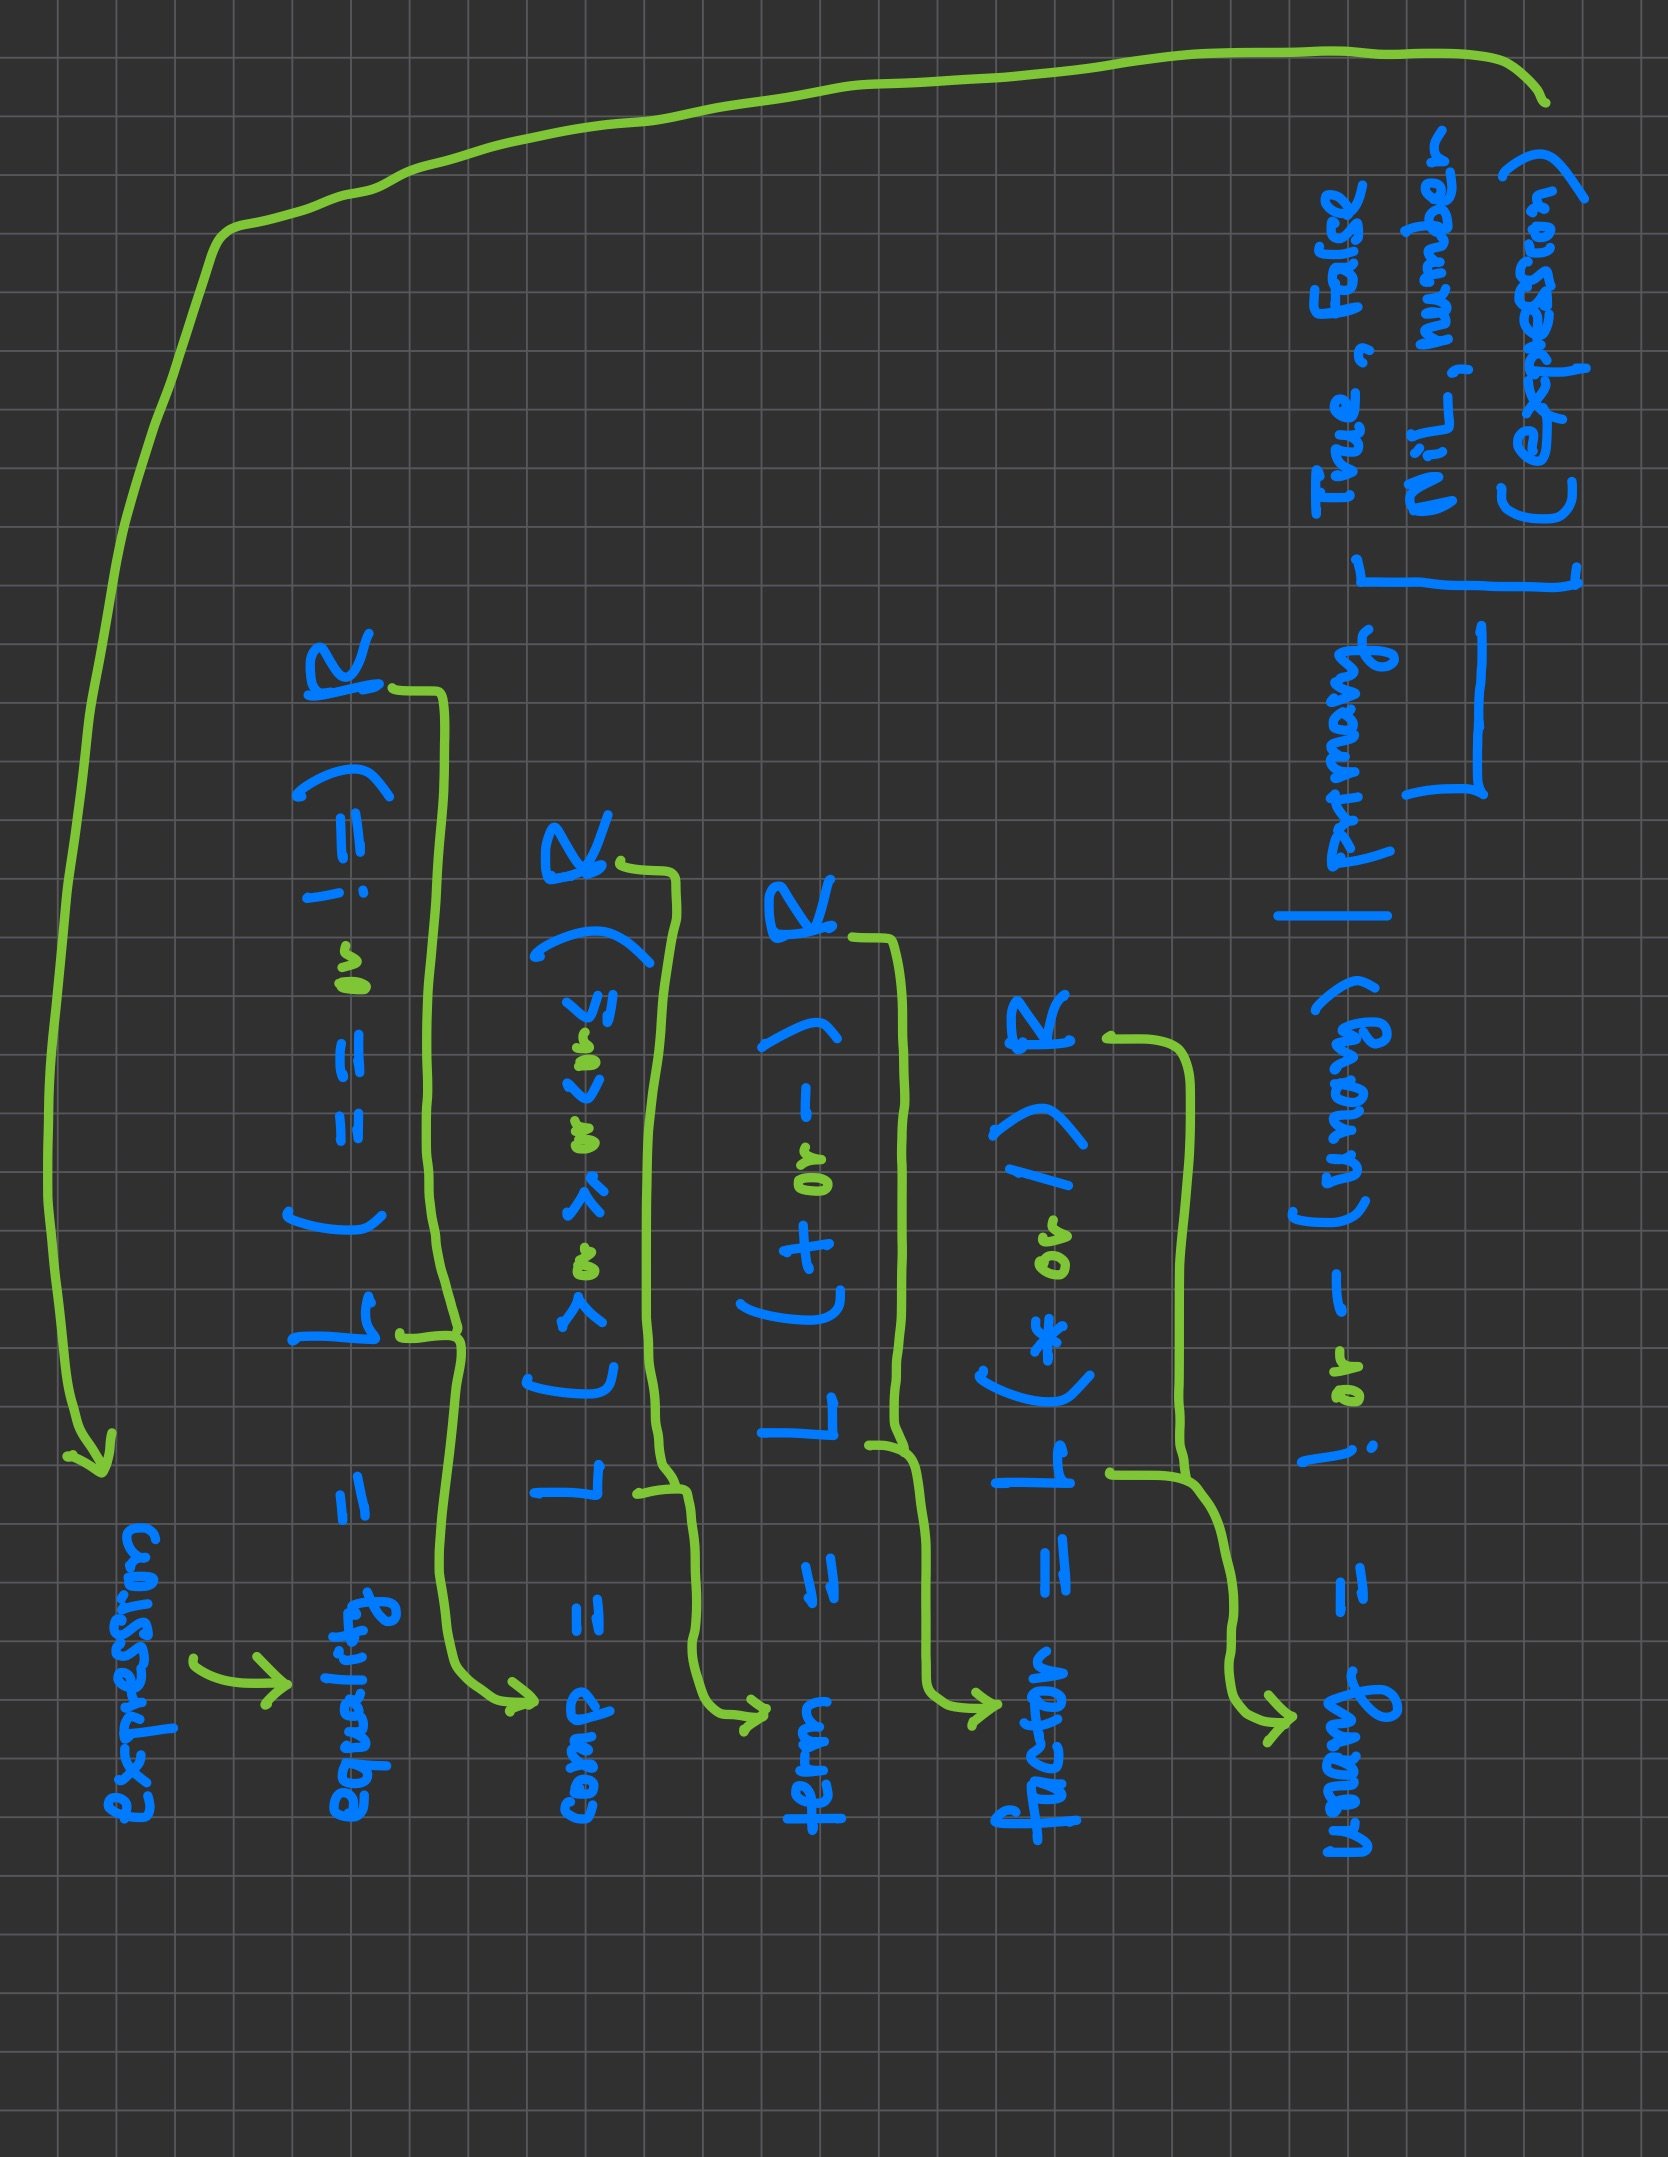 expression
equality = L ( == or != ) R
comp = L ( > or ⩾ or < or ≤ ) R
term = L ( + or - ) R
factor = L ( * or / ) R
unary = ! or - (unary) | primary
True, False
NiL, number
(expression)